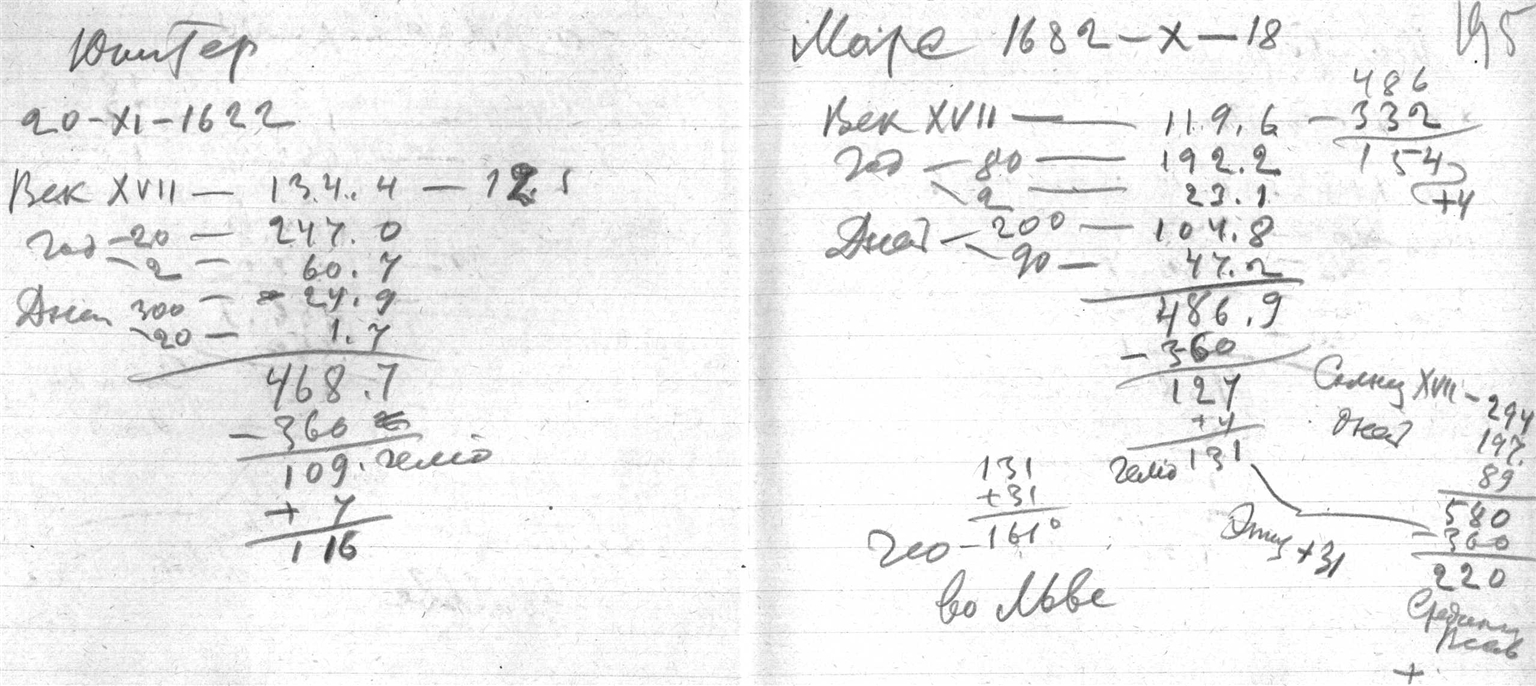 Юпитер
20-XI-1622
Век XVII — 134.4 —
Год -20 — 247.0
2 — 60.7
Дней 300 — 24.9
20 — 1.7
468.7
- 360
109. гелио
+ 7
116
Марс 1682-X-18
195
486
Век XVII — 119.6 — 332
Год — 80 — 192.2
154
2 — 23.1
+4
Дней — 200 — 104.8
90 — 47.2
486.9
- 360
127
+4
гелио 131
131
+31
161°
Гео
во Льве
Солнц XVII - 294
Дней 197.
89
580
- 360
220
+31
+